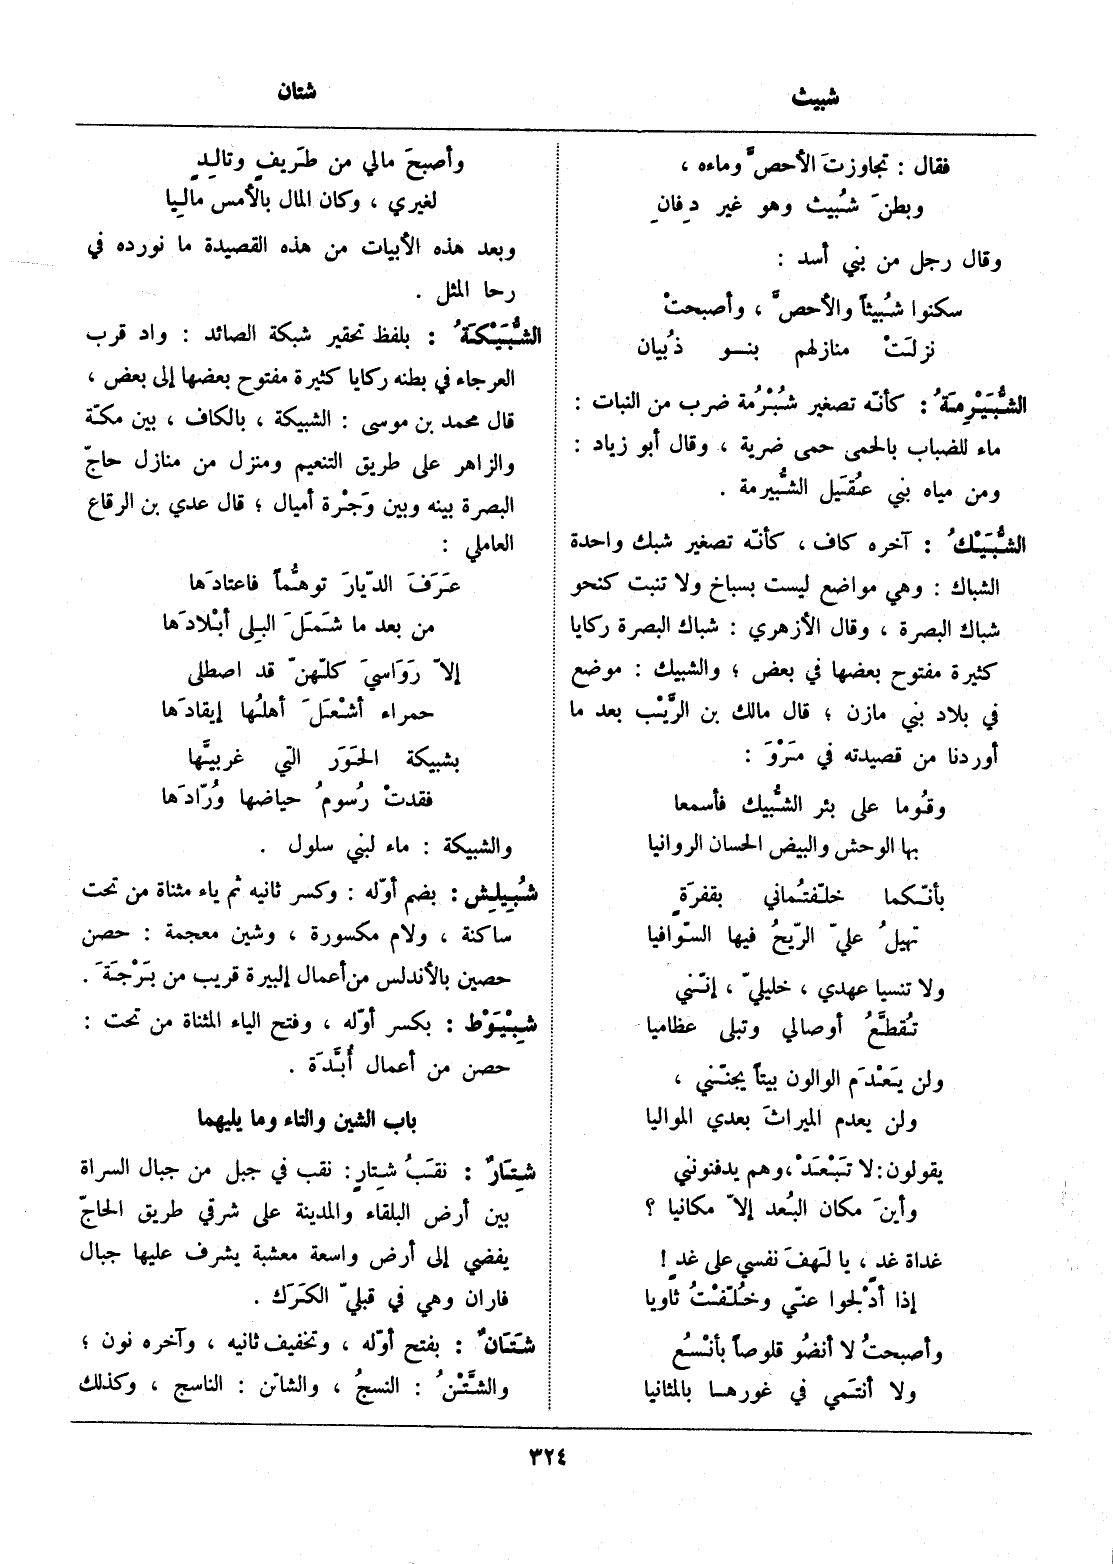 شبيث
شتان
فقال : تجاوزتَ الأحصَّ وماءه ،
وبطنَ شُبيث وهو غير دِفانِ
وقال رجل من بني أسد :
سكنوا شُبيثاً والأحصَّ ، وأصبحتْ
نزلَتْ منازلهم بنــو ذُبيان
الشُّبَيْرِمَةُ : كأنّه تصغير شُبْرُمة ضرب من النبات :
ماء للضباب بالحمى حمى ضرية ، وقال أبو زياد :
ومن مياه بني عُقَيل الشُّبيرمة .
الشُّبَيْكُ : آخره كاف ، كأنّه تصغير شبك واحدة
الشباك : وهي مواضع ليست بسباخ ولا تنبت كنحو
شباك البصرة ، وقال الأزهري : شباك البصرة ركايا
كثيرة مفتوح بعضها في بعض ؛ والشبيك : موضع
في بلاد بني مازن ؛ قال مالك بن الرَّيْب بعد ما
أوردنا من قصيدته في مَرْوَ :
وقُوما على بئر الشُّبيك فأسمعا
بها الوحش والبيض الحسان الروانيا
بأنّكما خلّفتُماني بقفرَةٍ
تهيلُ عليّ الرّيحُ فيها السّوافيا
ولا تنسيا عهدي ، خليليّ ، إنّني
تُقطَّعُ أوصالي وتبلى عظاميا
ولن يَعْدَم الوالون بيتاً يجنّني ،
ولن يعدم الميراثَ بعدي المواليا
يقولون: لا تَبْعَدْ ، وهم يدفنونني
وأينَ مكان البُعد إلاّ مكانيا ؟
غداة غدٍ ، يا لَهفَ نفسي على غدٍ !
إذا أدْلجوا عنّي وخُلّفْتُ ثاويا
وأصبحتُ لا أنضُو قلوصاً بأنْسُع
ولا أنتَمي في غورهــا بالمثانيا
وأصبحَ مالي من طَريفٍ وتالِدٍ
لغيري ، وكان المال بالأمس مالِيا
وبعد هذه الأبيات من هذه القصيدة ما نورده في
رحا المثل .
الشُّبَيْكَةُ : بلفظ تحقير شبكة الصائد : واد قرب
العرجاء في بطنه ركايا كثيرة مفتوح بعضها إلى بعض ،
قال محمد بن موسى : الشبيكة ، بالكاف ، بين مكّة
والزاهر على طريق التنعيم ومنزل من منازل حاجّ
البصرة بينه وبين وَجْرة أميال ؛ قال عدي بن الرقاع
العاملي :
عَرَفَ الدّيارَ توهُّماً فاعتادَها
من بعد ما شَمَلَ البِلى أبْلادَها
إلاّ رَوَاسيَ كلّهنّ قد اصطلى
حمراء أشْعَلَ أهلُها إيقادَها
بشبيكة الحَوَر التي غربيَّها
فقدتْ رُسومُ حياضها وُرّادَها
والشبيكة : ماء لبني سلول .
شُبِيلِش : بضم أوّله : وكسر ثانيه ثم ياء مثناة من تحت
ساكنة ، ولام مكسورة ، وشين معجمة : حصن
حصين بالأندلس من أعمال إلبيرة قريب من بَرْجَةَ .
شِبْيَوْط : بكسر أوّله ، وفتح الياء المثناة من تحت :
حصن من أعمال أُبَّدَة .
باب الشين والتاء وما يليهما
شِتَارٌ : نقبُ شِتارٍ : نقب في جبل من جبال السراة
بين أرض البلقاء والمدينة على شرقي طريق الحاجّ
يفضي إلى أرض واسعة معشبة يشرف عليها جبال
فاران وهي في قبليّ الكَرَك .
شَتَانٌ : بفتح أوّله ، وتخفيف ثانيه ، وآخره نون ؛
والشَّتْنُ : النسجُ ، والشاتن : الناسج ، وكذلك
٣٢٤